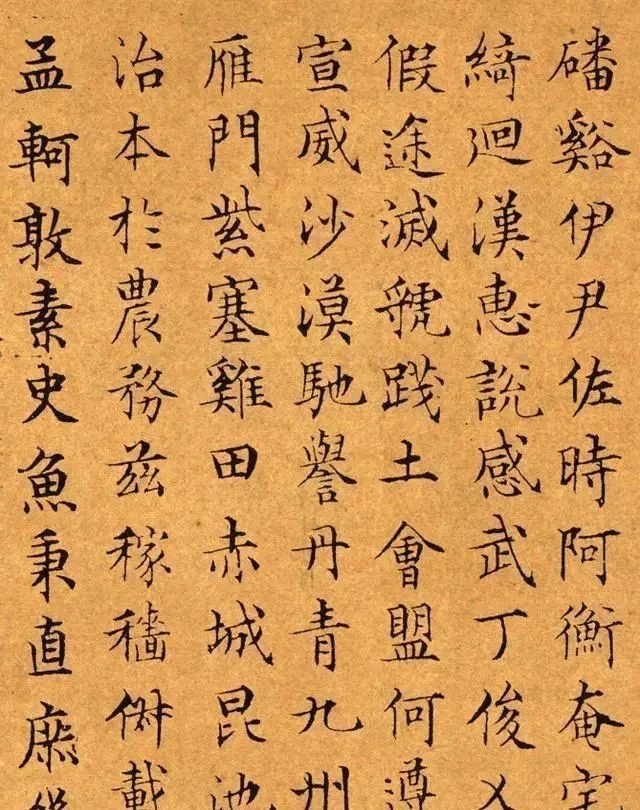 磻谿伊尹佐時阿衡奄宅
綺迴漢惠說感武丁俊乂
假途滅虢踐土會盟何遵
宣威沙漠馳譽丹青九州
雁門紫塞雞田赤城昆池
治本於農務茲稼穡俶載
孟軻敦素史魚秉直庶幾